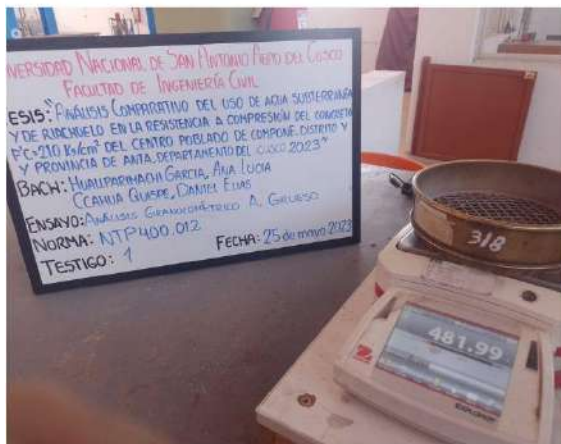 VERSIDAD NACIONAL DE SAN ANTONIO ABAD DEL CUSCO
FACULTAD DE INGENIERÍA CIVIL
ESIS: "ANÁLISIS COMPARATIVO DEL USO DE AGUA SUBTERRANEA
Y DE RIACHUELO EN LA RESISTENCIA A COMPRESIÓN DEL CONCRETO
F'C=210 Kg/cm² DEL CENTRO POBLADO DE COMPONE, DISTRITO Y
Y PROVINCIA DE ANTA, DEPARTAMENTO DEL CUSCO 2023"
BACH: HUALLPARIMACHI GARCIA, ANA LUCIA
CCAHUA QUISPE, DANIEL ELIAS
ENSAYO: ANÁLISIS GRANULOMÉTRICO A. GRUESO
NORMA: NTP400.012
TESTIGO: 1
FECHA: 25 de mayo 2023
3/8
481.99
OHAUS